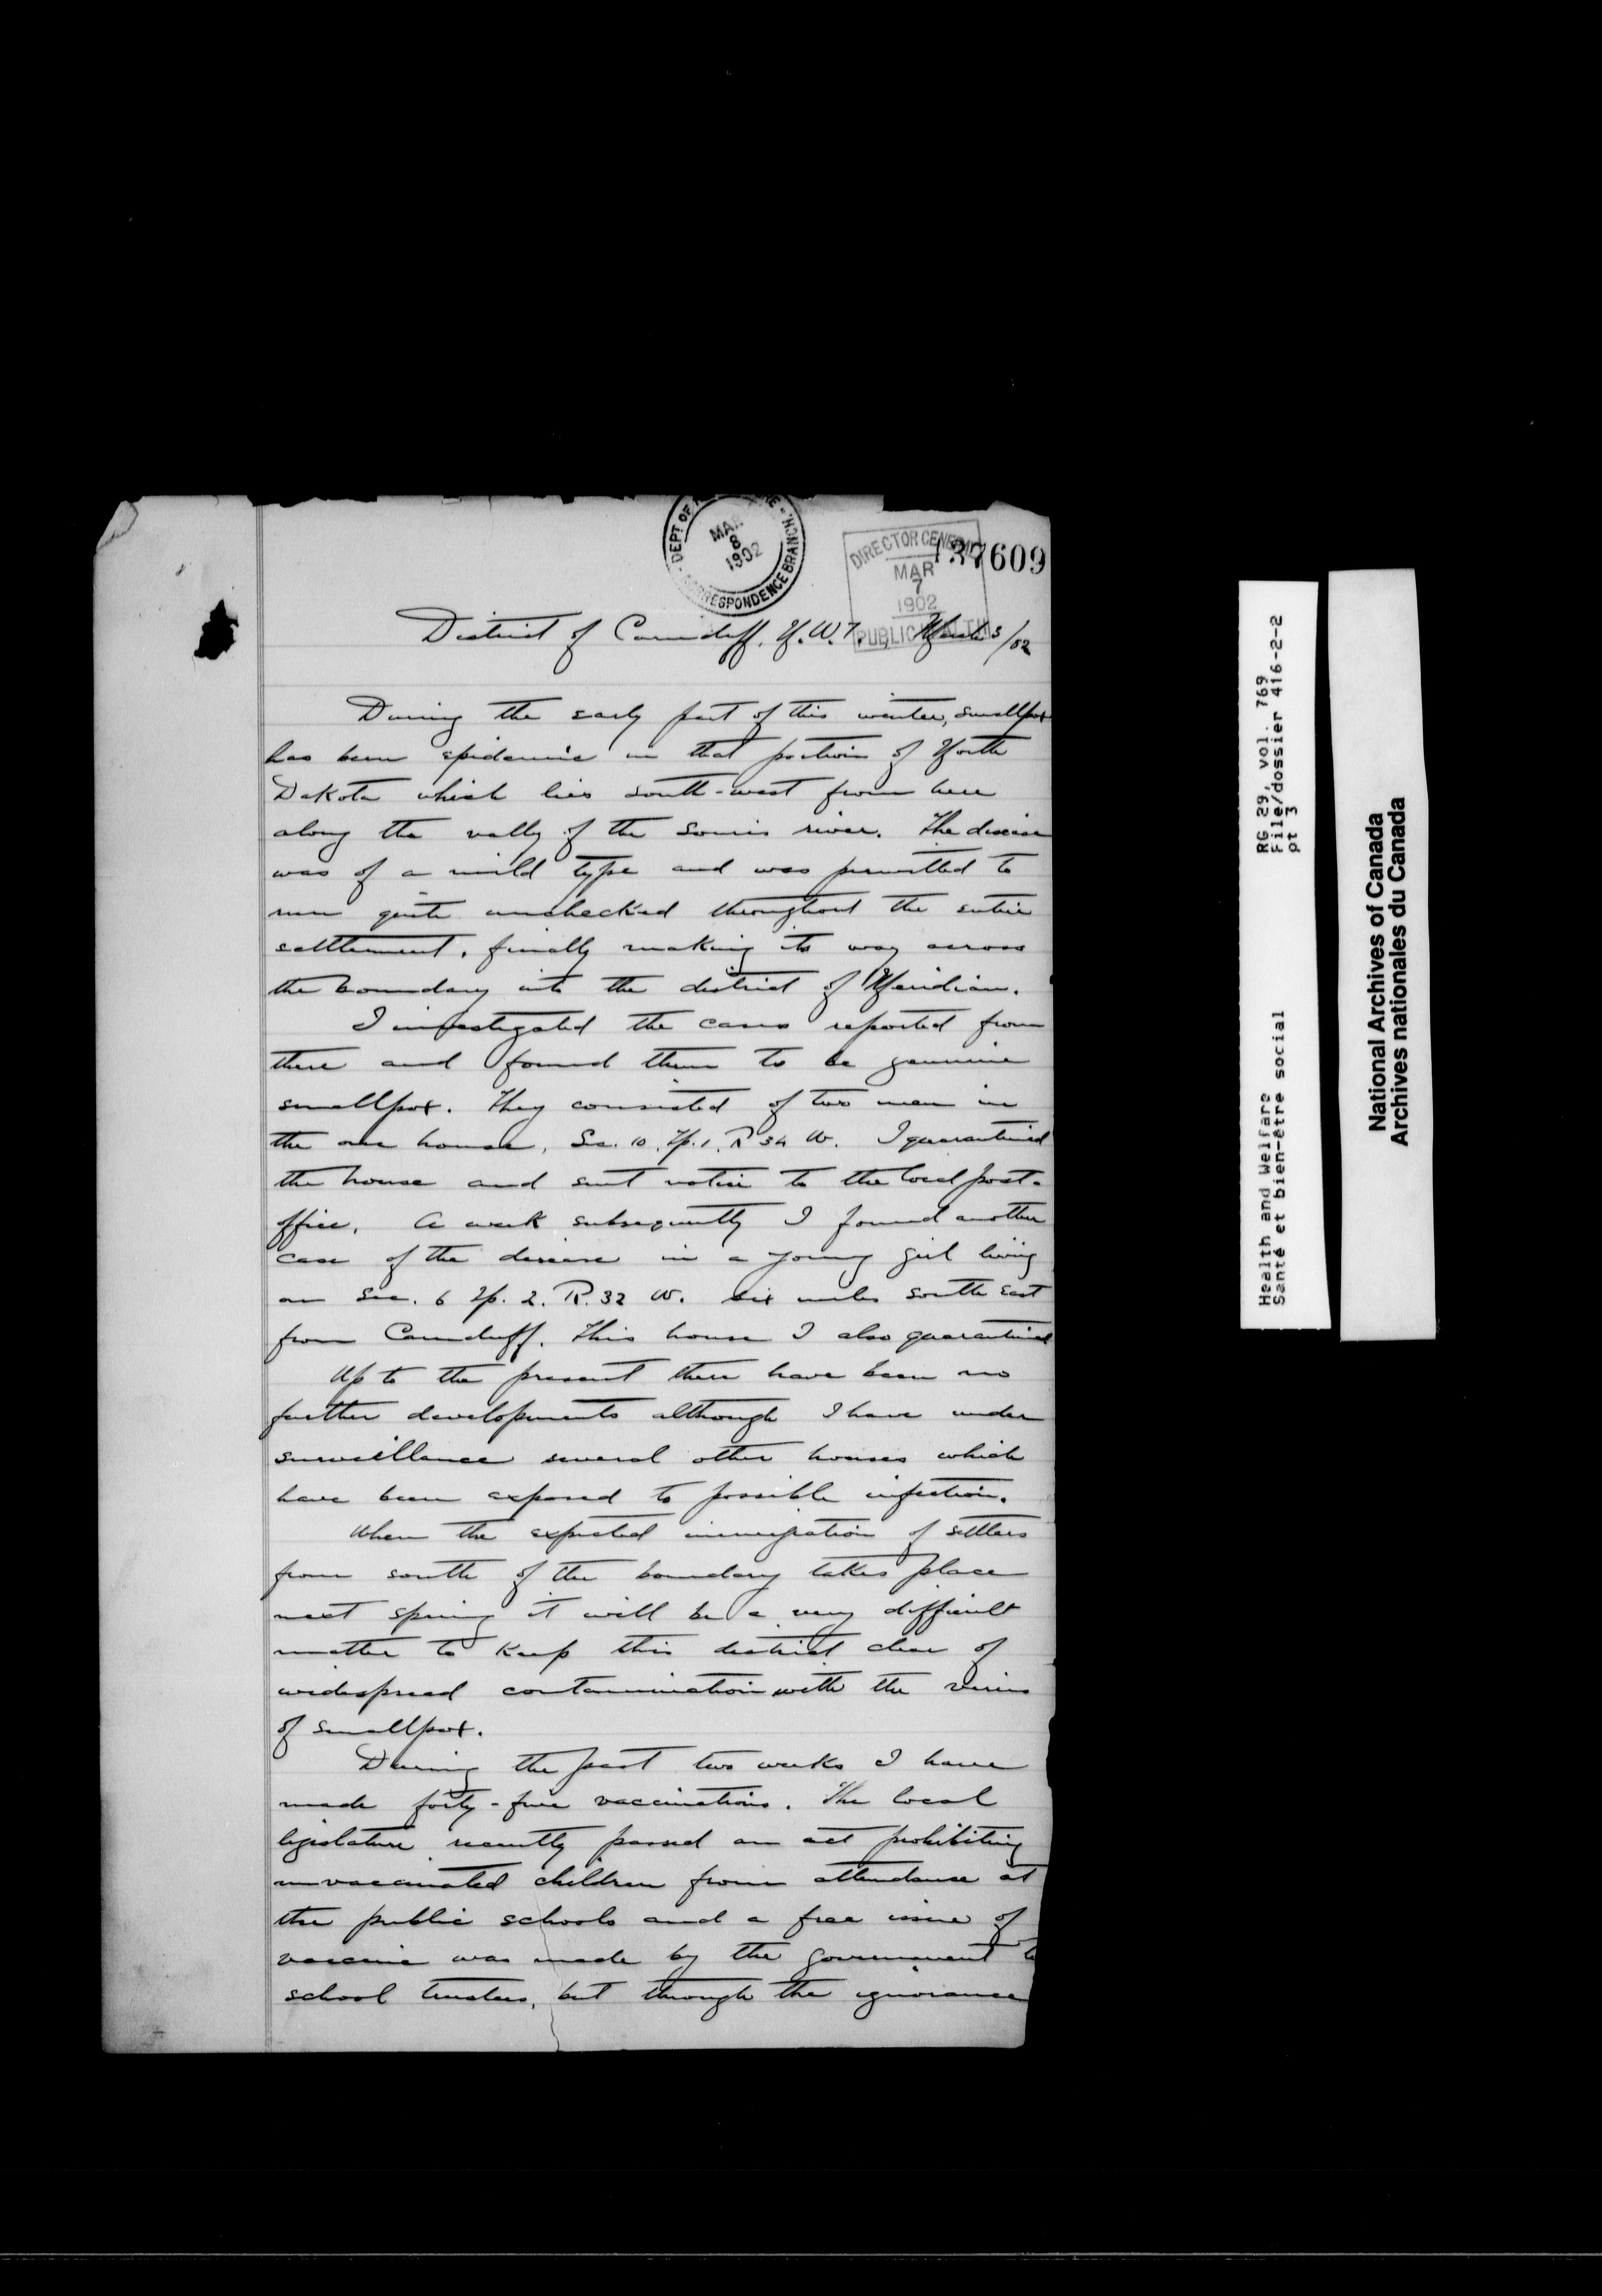 DEPT OF
MAR
8
1902
CORRESPONDENCE BRANCH
DIRECTOR GENERAL
MAR
7
1902
PUBLIC HEALTH
137609
District of Carnduff, N.W.T. March 3/02
During the early part of this winter, smallpox
has been epidemic in that portion of North
Dakota which lies south-west from here
along the vally of the Souris river. The disease
was of a mild type and was permitted to
run quite unchecked throughout the entire
settlement, finally making its way across
the boundary into the district of Meridian.
I investigated the cases reported from
there and found them to be genuine
smallpox. They consisted of two men in
the one house, Sec. 10, Tp. 1, R 34 W. I quarantined
the house and sent notice to the local post-
office. A week subsequently I found another
case of the disease in a young girl living
on Sec. 6 Tp. 2. R. 32 W. six miles south east
from Carnduff. This house I also quarantined
Up to the present there have been no
further developments although I have under
surveillance several other houses which
have been exposed to possible infection.
When the expected immigration of settlers
from south of the boundary takes place
next spring it will be a very difficult
matter to keep this district clear of
widespread contamination with the virus
of smallpox.
During the past two weeks I have
made forty-five vaccinations. The local
legislature recently passed an act prohibiting
unvaccinated children from attendance at
the public schools and a free issue of
vaccine was made by the government to
school trustees, but through the ignorance
Health and Welfare RG 29, vol. 769
Santé et bien-être social File/dossier 416-2-2
pt 3
National Archives of Canada
Archives nationales du Canada